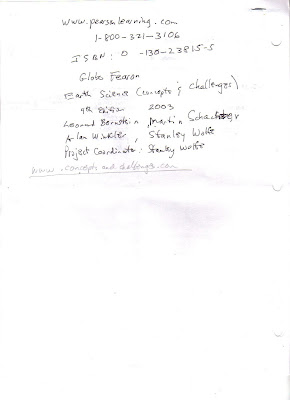 www.pearsonlearning.com
1-800-321-3106
ISBN: 0-130-23815-5
Globe Fearon
Earth Science (concepts & challenges)
4th Edition 2003
Leonard Bernstein, Martin Schachter
Alan Winkler, Stanley Wolfe
Project Coordinator: Stanley Wolfe
www.conceptsandchallenges.com